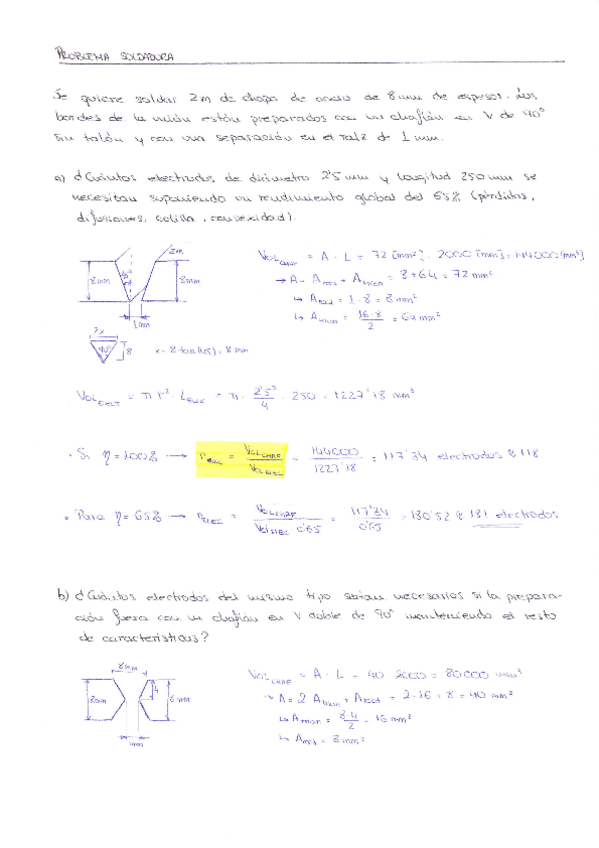 PROBLEMA SOLDADURA
Se quiere soldar 2m de chapa de acero de 8mm de espesor. Los
bordes de la unión están preparados con un chaflán en V de 90°
sin talón y con una separación en el raíz de 1mm.
a) ¿Cuántos electrodos de diámetro 2'5mm y longitud 250mm se
necesitan suponiendo un rendimiento global del 65% (pérdidas,
, colilla, convexidad).
2m
8mm
45°
8mm
1mm
Vol CHAF = A · L = 72 [mm²] · 2000 [mm] = 144000 [mm³]
→ A = A rect + A trian = 8 + 64 = 72 mm²
↳ A rect = 1 · 8 = 8 mm²
↳ A trian = 16·8 / 2 = 64 mm²
2x
90°
8
x = 8 tan(45) = 8 mm
· Vol ELECT = π r² · L ELEC = π · 2'5² / 4 · 250 = 1227'18 mm³
· Si η = 100% → n ELEC = Vol CHAF / Vol ELEC = 144000 / 1227'18 = 117'34 electrodos ≈ 118
· Para η = 65% → n ELEC = Vol CHAF / Vol ELEC 0'65 = 117'34 / 0'65 = 180'52 ≈ 181 electrodos
b) ¿Cuántos electrodos del mismo tipo serían necesarios si la prepara-
ción fuera con un chaflán en V doble de 90° manteniendo el resto
de características?
8mm
8mm
4
8mm
1mm
Vol CHAF = A · L = 40 · 2000 = 80000 mm³
→ A = 2 A trian + A rect = 2 · 16 + 8 = 40 mm²
↳ A trian = 8·4 / 2 = 16 mm²
↳ A rect = 8 mm²